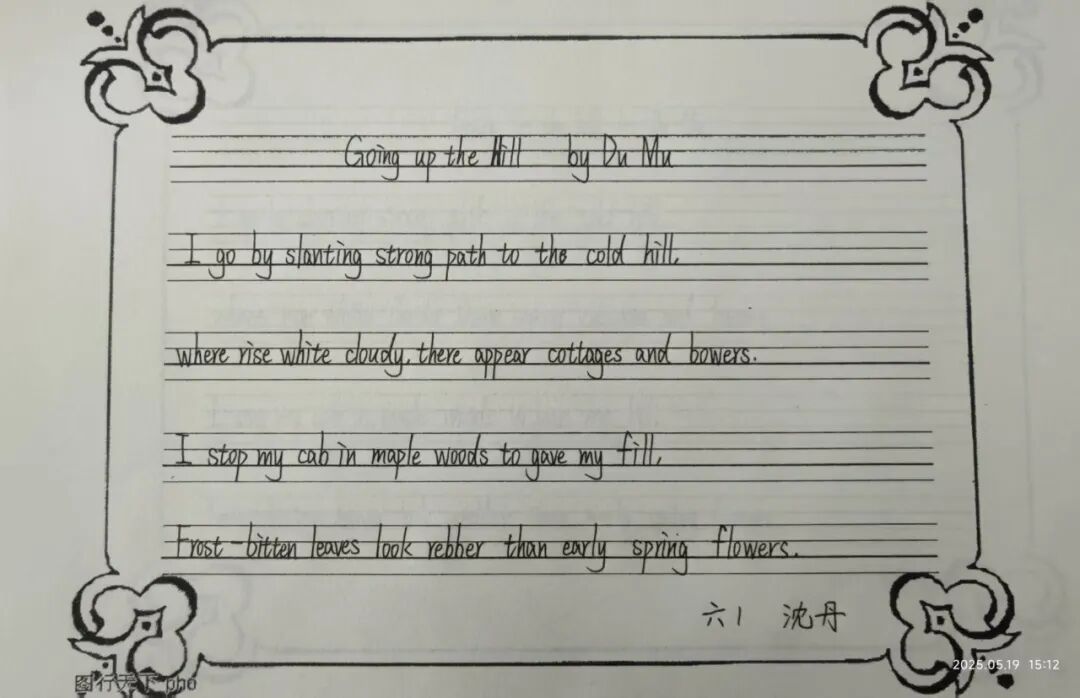 Going up the Hill by Du Mu
I go by slanting strong path to the cold hill,
where rise white cloudy, there appear cottages and bowers.
I stop my cab in maple woods to gave my fill,
Frost-bitten leaves look rebber than early spring flowers.
六1 沈丹
2025.05.19 15:12
图行天下 pho